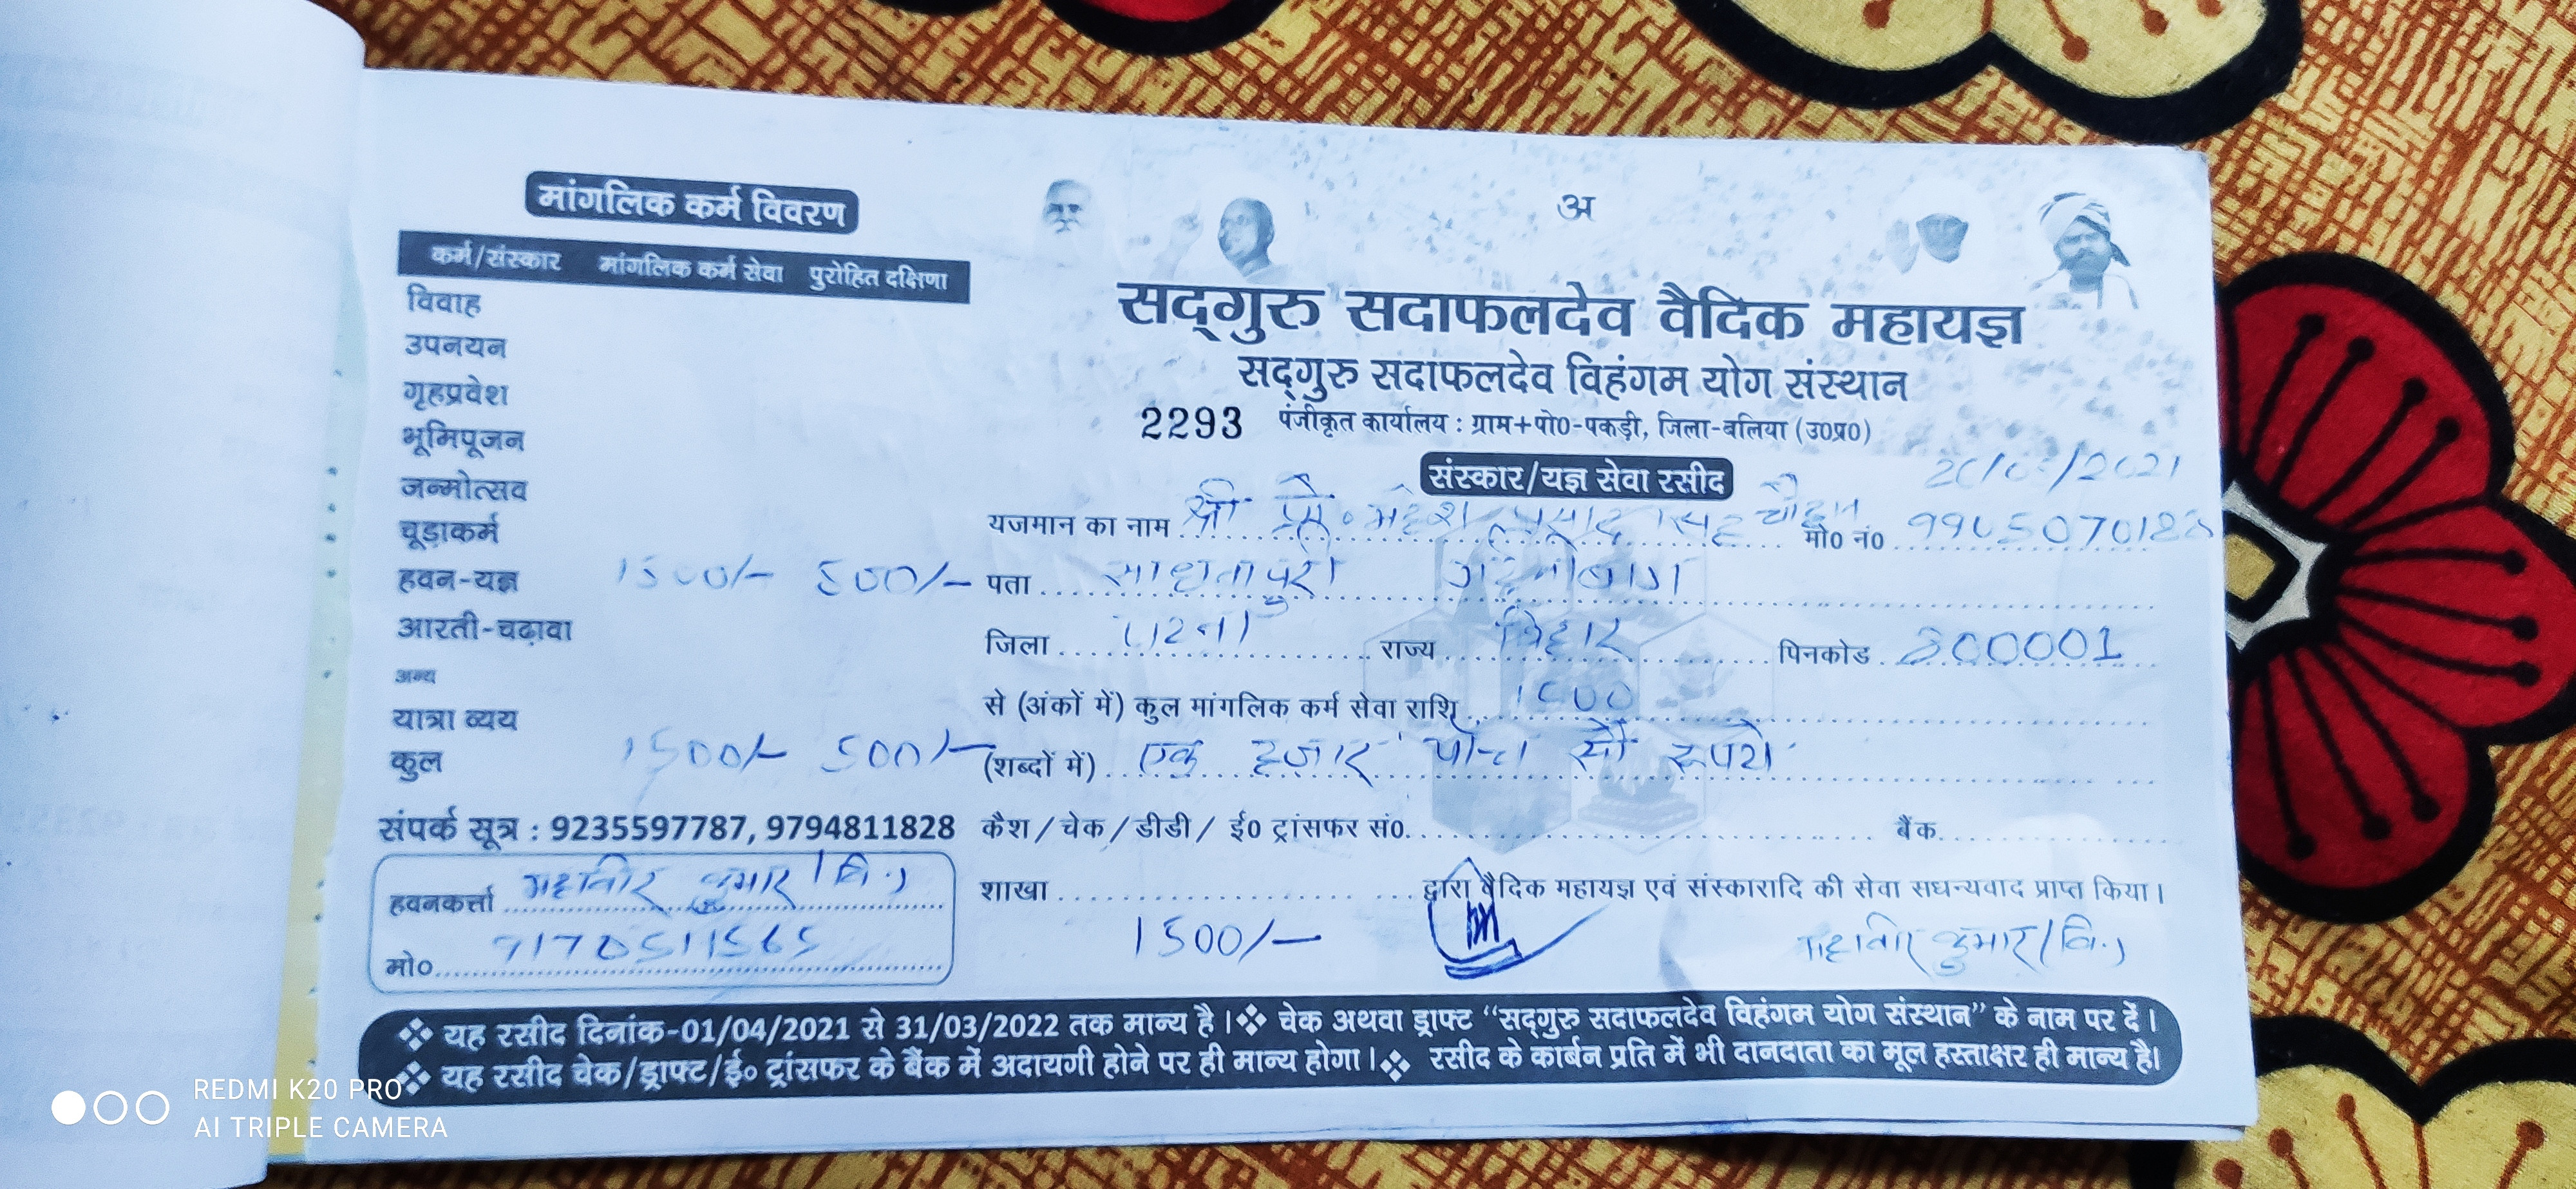 मांगलिक कर्म विवरण
कर्म/संस्कार मांगलिक कर्म सेवा पुरोहित दक्षिणा
विवाह
उपनयन
गृहप्रवेश
भूमिपूजन
जन्मोत्सव
चूड़ाकर्म
हवन-यज्ञ 1500/- 500/-
आरती-चढ़ावा
अन्य
यात्रा व्यय
कुल 1500/- 500/-
संपर्क सूत्र : 9235597787, 9794811828
हवनकर्त्ता महावीर कुमार (वि.)
मो० 9170511565
अ
सद्गुरु सदाफलदेव वैदिक महायज्ञ
सद्गुरु सदाफलदेव विहंगम योग संस्थान
2293 पंजीकृत कार्यालय : ग्राम+पो0-पकड़ी, जिला-बलिया (उ0प्र0)
संस्कार/यज्ञ सेवा रसीद
यजमान का नाम श्री प्रो० महेश प्रसाद सिंह चौहान मो0 नं0
पता
जिला पटना राज्य बिहार पिनकोड 800001
से (अंकों में) कुल मांगलिक कर्म सेवा राशि 1500
(शब्दों में) एक हजार पाँच सौ रूपये
कैश / चेक / डीडी / ई0 ट्रांसफर सं0. बैंक
शाखा द्वारा वैदिक महायज्ञ एवं संस्कारादि की सेवा सधन्यवाद प्राप्त किया।
1500/- महावीर कुमार (वि.)
❖ यह रसीद दिनांक-01/04/2021 से 31/03/2022 तक मान्य है। ❖ चेक अथवा ड्राफ्ट “सद्गुरु सदाफलदेव विहंगम योग संस्थान” के नाम पर दें।
❖ यह रसीद चेक/ड्राफ्ट/ई० ट्रांसफर के बैंक में अदायगी होने पर ही मान्य होगा। ❖ रसीद के कार्बन प्रति में भी दानदाता का मूल हस्ताक्षर ही मान्य है।
REDMI K20 PRO
AI TRIPLE CAMERA